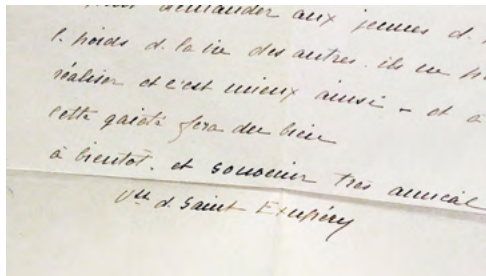 demander aux jeunes d.
l. poids d. la vie des autres. ils ne p
réaliser et c'est mieux ainsi - et à
cette gaieté fera du bien
à bientôt. et souvenir très amical
d. Saint Exupéry